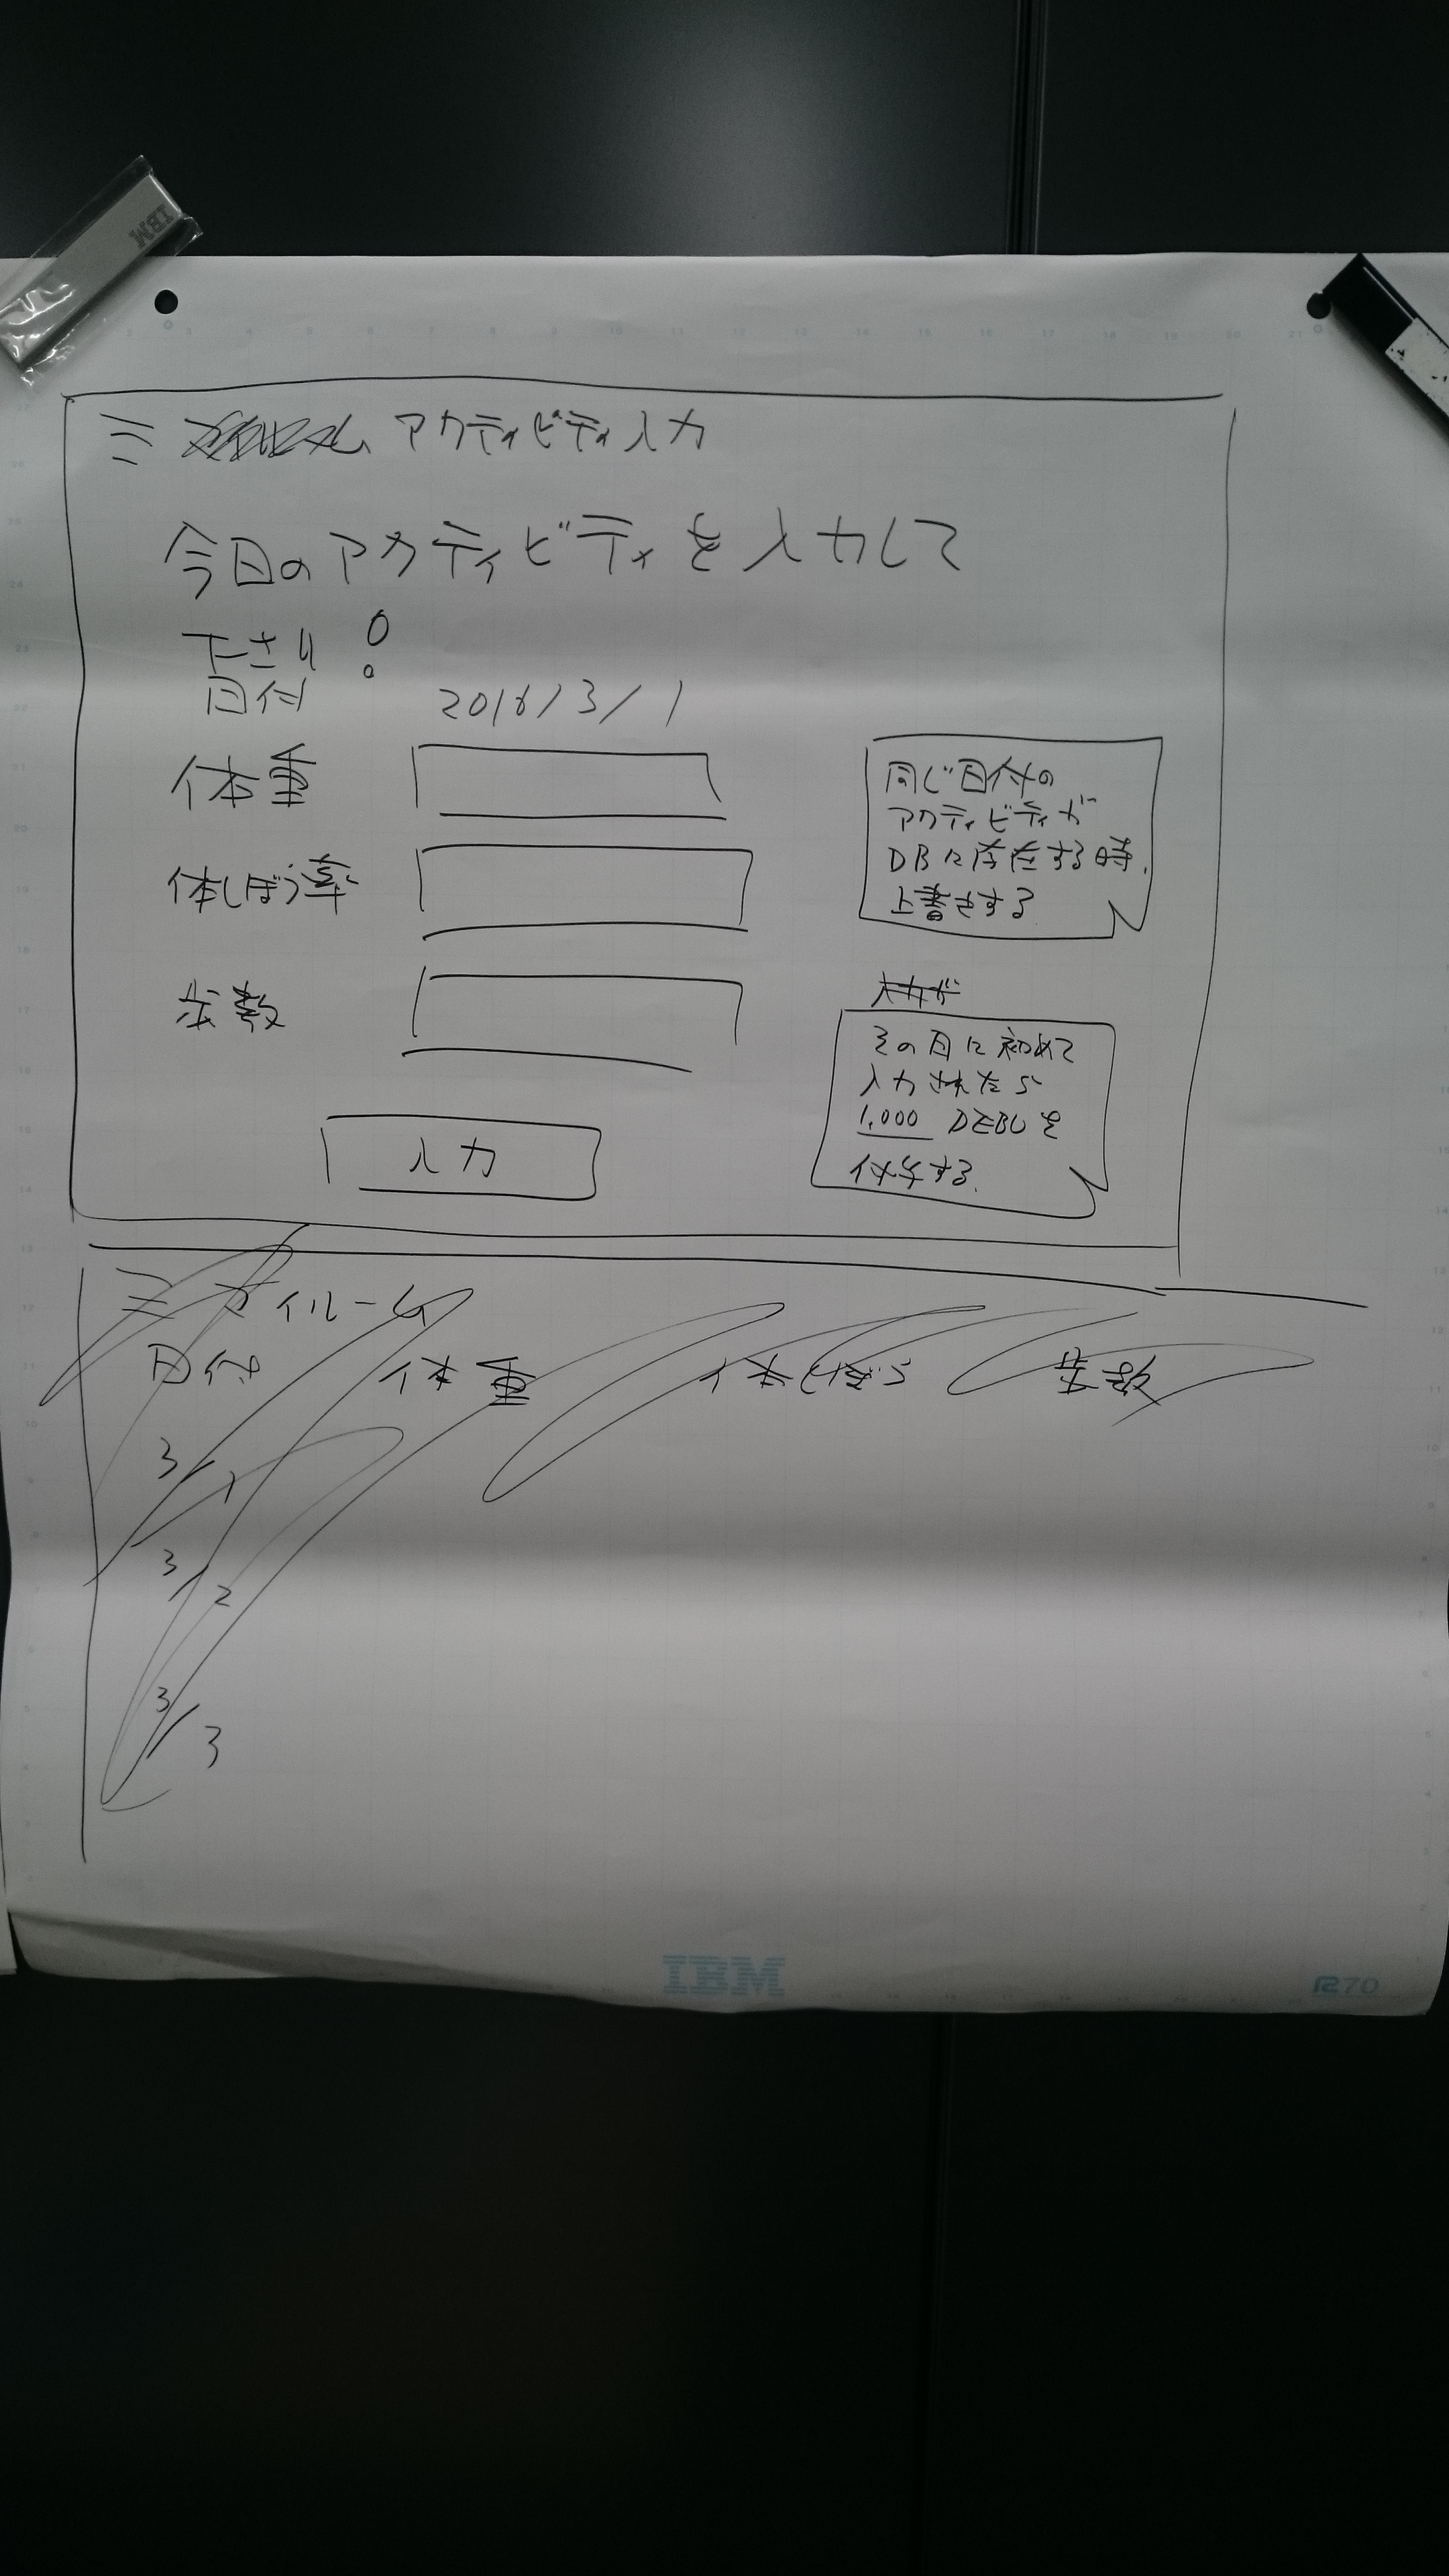 IBM
アクティビティ入力
今日のアクティビティを入力して
下さい!
日付 2016/3/1
体重
体しぼう率
歩数
入力
同じ日付の
アクティビティが
DBに存在する時、
上書きする
入力が
その日に初めて
入力されたら
1,000 DEBUを
付与する.
マイルーム
日付 体重 体しぼう 歩数
3/1
3/2
3/3
IBM